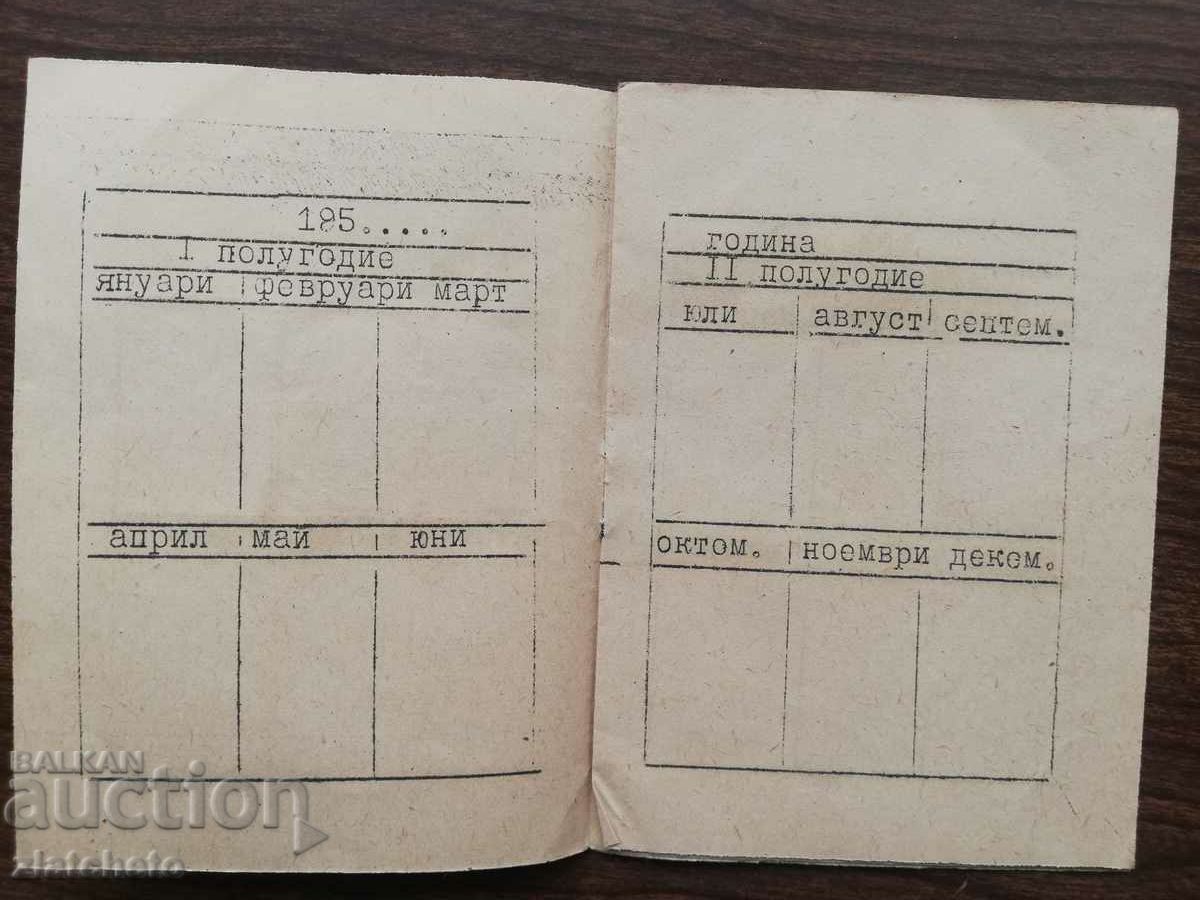 195.....
I полугодие
януари февруари март
април май юни
година
II полугодие
юли август септем.
октом. ноември декем.
BALKAN
auction
zlatcheto